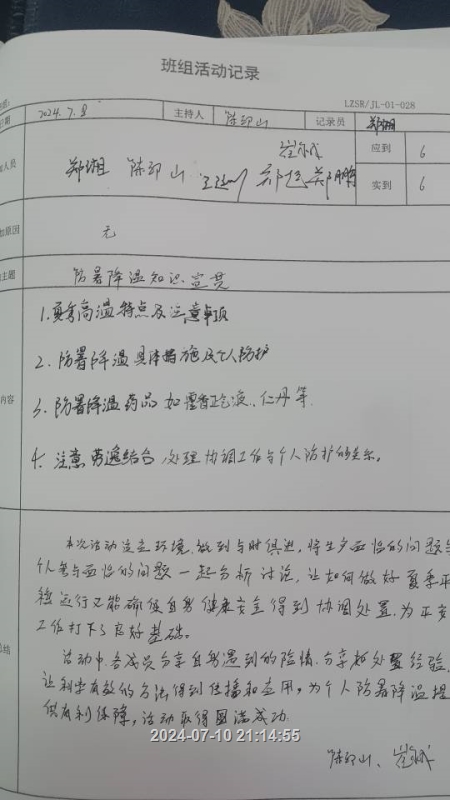 班组活动记录
LZSR/JL-01-028
日期 2024.7.8 主持人 陈卯山 记录员 郑湘
人员 郑湘 陈卯山 郑旭 郑鹏 应到 6
实到 6
原因 无
主题 防暑降温知识宣贯
1.夏季高温特点及注意事项
2.防暑降温具体措施及个人防护
内容 3.防暑降温药品如藿香正气液、仁丹等
4.注意劳逸结合,处理协调工作与个人防护的关系。
本次活动注意环境,做到与时俱进,将生产面临的问题与
个人易于面临的问题一起分析讨论,让如何做好夏季平
稳运行又能确保自身健康安全得到协调处置,为平安
工作打下了良好基础。
总结 活动中,各成员分享自身遇到的险情,分享其处置经验,
让科学有效的方法得到传播和应用,为个人防暑降温提
供有利保障,活动取得圆满成功
2024-07-10 21:14:55
陈卯山、